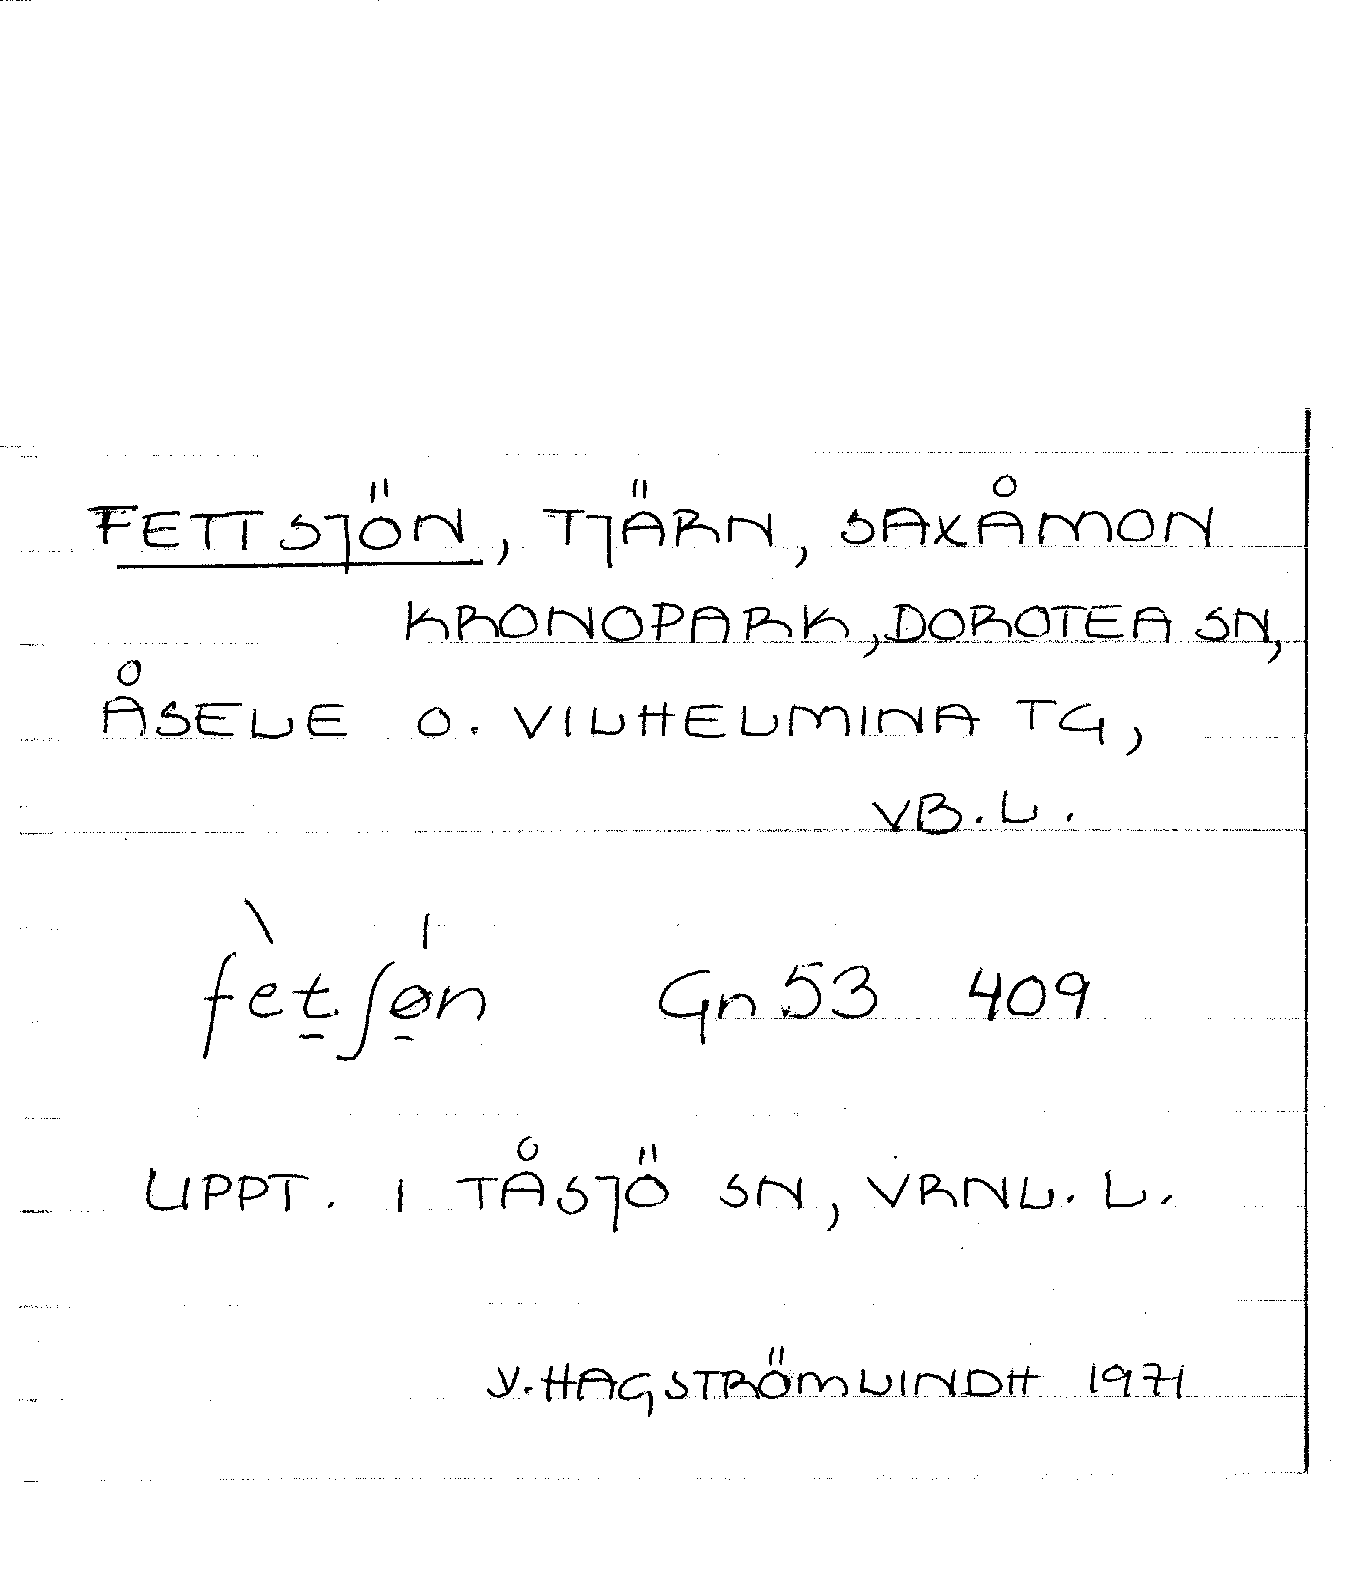 FETTSJÖN, TJÄRN, SAXÅMON
KRONOPARK, DOROTEA SN,
ÅSELE O. VILHELMINA TG,
VB.L.
fèt̠ʃø̠n Gn 53 409
UPPT. I TÅSJÖ SN, VRNL. L.
Y. HAGSTRÖM LINDH 1971